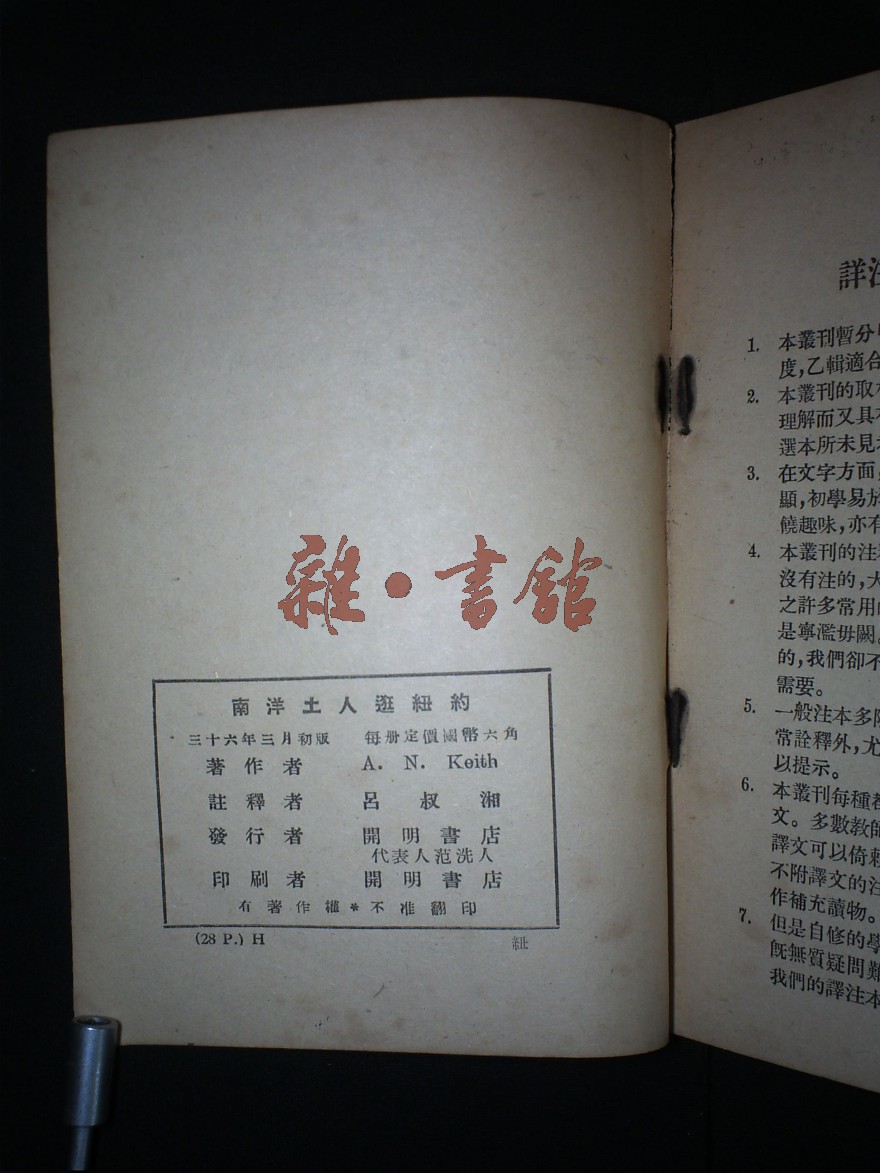 雜·書館
南洋土人逛紐約
三十六年三月初版 每册定價國幣六角
著作者 A. N. Keith
註釋者 呂叔湘
發行者 開明書店
代表人范洗人
印刷者 開明書店
有著作權*不准翻印
(28 P.) H 紐
詳注
1. 本叢刊暫分
度,乙輯適合
2. 本叢刊的取
理解而又具
選本所未見
3. 在文字方面,
顯,初學易於
饒趣味,亦有
4. 本叢刊的注
沒有注的,大
之許多常用
是寧濫毋闕。
的,我們卻不
需要。
5. 一般注本多
常詮釋外,尤
以提示。
6. 本叢刊每種
文。多數教師
譯文可以倚賴
不附譯文的注
作補充讀物。
7. 但是自修的學
既無質疑問難
我們的譯注本